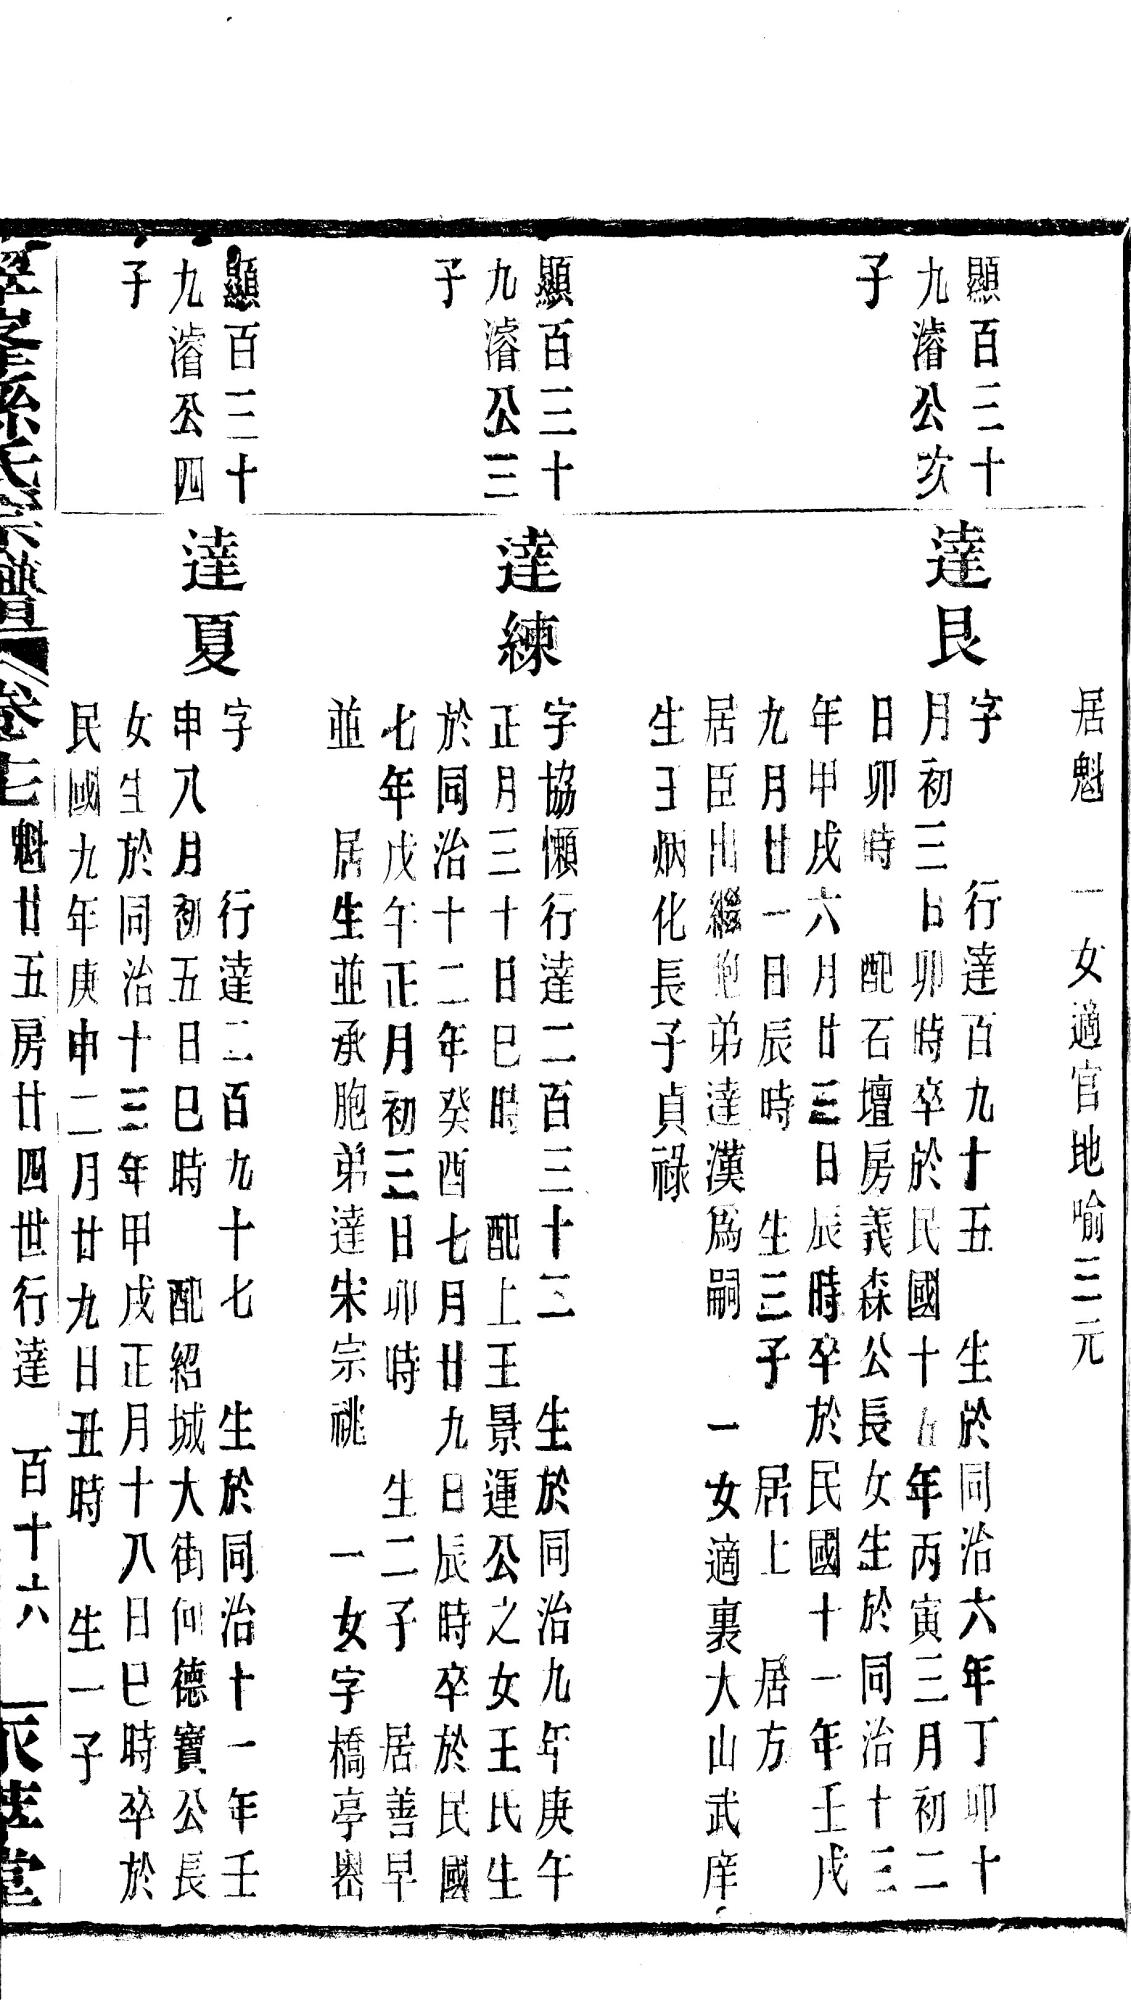 居魁　一女適官地喻三元
顯百三十
九濬公亥
子
達艮
字　行達百九十五　生於同治六年丁卯十
月初三日卯時卒於民國十五年丙寅三月初二
日卯時　配石壇房義森公長女生於同治十三
年甲戌六月廿三日辰時卒於民國十一年壬戌
九月廿一日辰時　生三子　居上　居方
居臣出繼胞弟達漢爲嗣　一女適裏大山武庠
生王炳化長子貞祿
顯百三十
九濬公三
子
達練
字協懶行達二百三十二　生於同治九年庚午
正月三十日巳時　配上王景運公之女王氏生
於同治十二年癸酉七月廿九日辰時卒於民國
七年戊午正月初三日卯時　生二子　居善早
並　居生並承胞弟達朱宗祧　一女字橋亭
顯百三十
九濬公四
子
達夏
字　行達二百九十七　生於同治十一年壬
申八月初五日巳時　配紹城大街何德寶公長
女生於同治十三年甲戌正月十八日巳時卒於
民國九年庚申二月廿九日丑時　生一子
孫氏宗譜　卷七　魁廿五房廿四世行達　百十六　堂